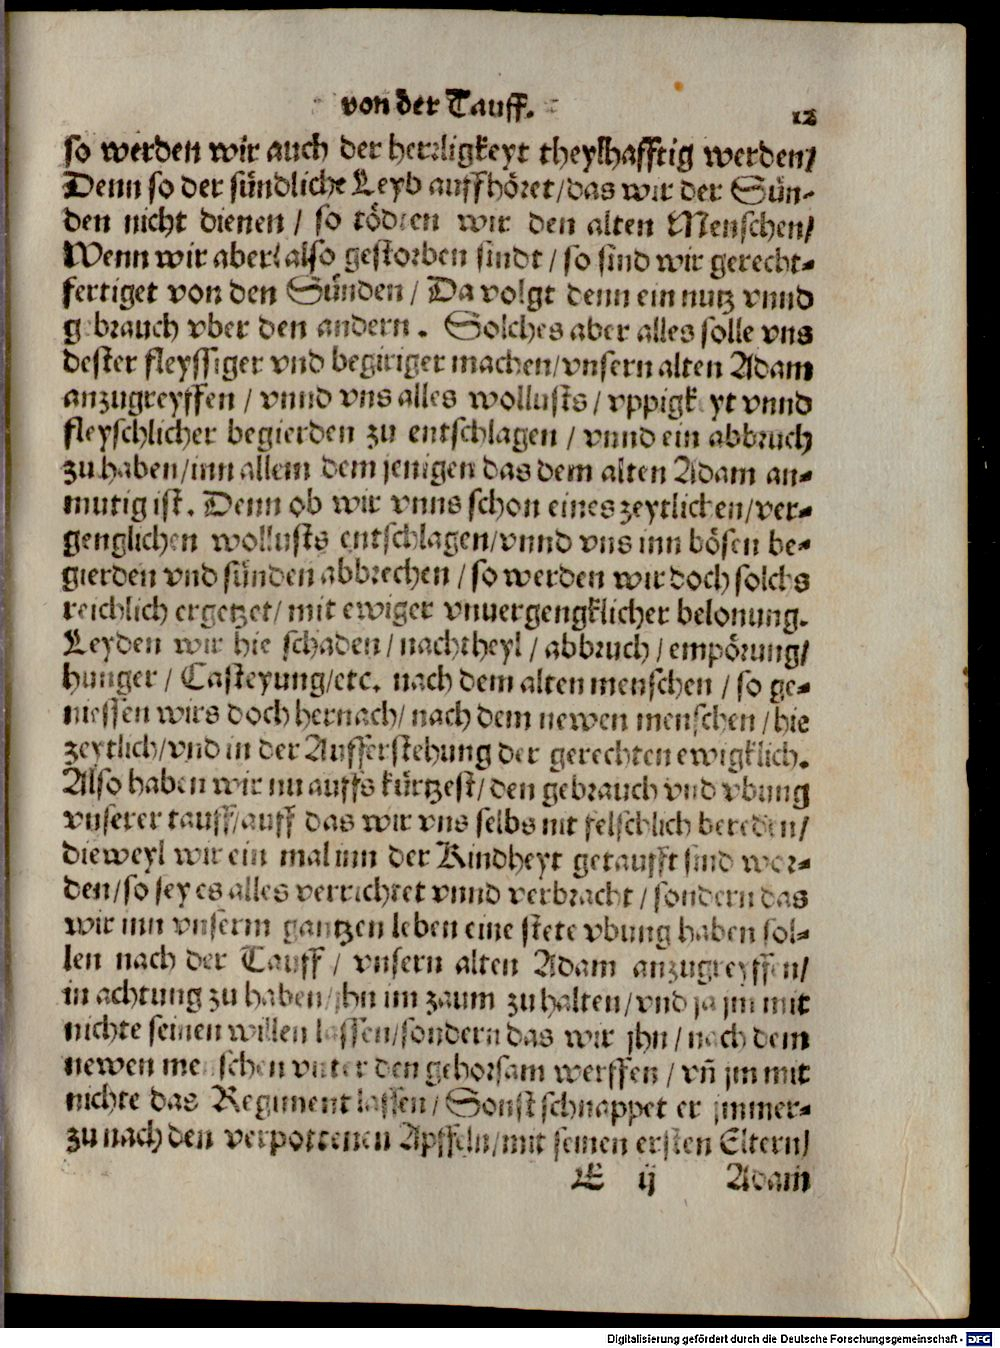 von der Tauff.
12
so werden wir auch der herrligkeyt theylhafftig werden/
Denn so der sündliche Leyb auffhöret/das wir der Sün-
den nicht dienen / so tödten wir den alten Menschen/
Wenn wir aber also gestorben sindt / so sind wir gerecht-
fertiget von den Sünden / Da volgt denn ein nutz vnnd
gebrauch vber den andern. Solches aber alles solle vns
dester fleyssiger vnd begiriger machen/vnsern alten Adam
anzugreyffen / vnnd vns alles wollusts / vppigkeyt vnnd
fleyschlicher begierden zu entschlagen / vnnd ein abbruch
zu haben/inn allem dem jenigen das dem alten Adam an-
mutig ist. Denn ob wir vnns schon eines zeytlichen/ver-
genglichen wollusts entschlagen/vnnd vns inn bösen be-
gierden vnd sünden abbrechen / so werden wir doch solchs
reichlich ergetzet/ mit ewiger vnuergengklicher belonung.
Leyden wir hie schaden / nachtheyl / abbruch / empörung/
hunger / Casteyung/etc. nach dem alten menschen / so ge-
niessen wirs doch hernach/ nach dem newen menschen / hie
zeytlich/vnd in der Aufferstehung der gerechten ewigklich.
Also haben wir nu auffs kürtzest/ den gebrauch vnd vbung
vnserer tauff/auff das wir vns selbs nit felschlich bereden/
dieweyl wir ein mal inn der Kindheyt getaufft sind wor-
den/so sey es alles verrichtet vnnd verbracht / sondern das
wir inn vnserm gantzen leben eine stete vbung haben sol-
len nach der Tauff / vnsern alten Adam anzugreyffen/
in achtung zu haben/jhn im zaum zu halten/vnd ja jm mit
nichte seinen willen lassen/sondern das wir jhn / nach dem
newen menschen vnter den gehorsam werffen / vñ jm mit
nichte das Regiment lassen/ Sonst schnappet er jmmer-
zu nach den verpottenen Apffeln/mit seinen ersten Eltern/
E ij Adam
Digitalisierung gefördert durch die Deutsche Forschungsgemeinschaft - DFG